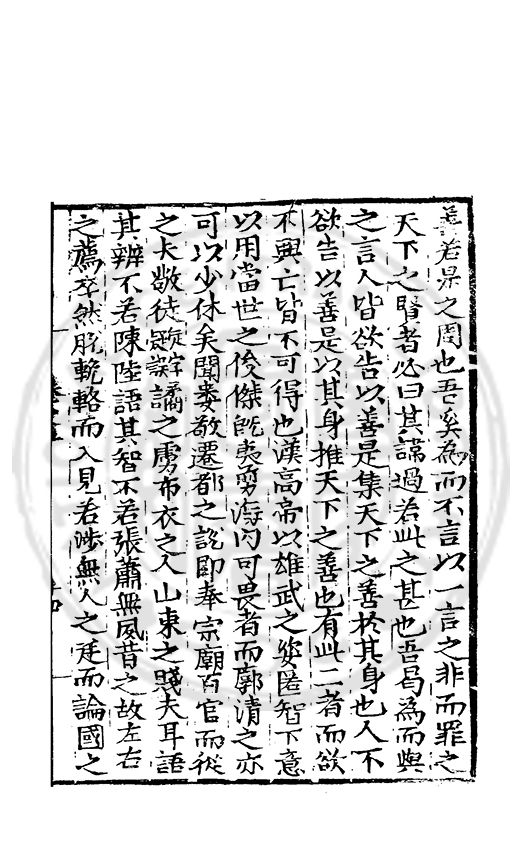 善若是之周也吾奚為而不言以一言之非而罪之
天下之賢者必曰其謫過若此之甚也吾曷為而與
之言人皆欲告以善是集天下之善於其身也人不
欲告以善是以其身推天下之善也有此二者而欲
不興亡皆不可得也漢高帝以雄武之姿匿智下意
以用當世之俊傑旣夷剪海内可畏者而廓清之亦
可以少休矣聞婁敬遷都之說即奉宗廟百官而從
之夫敬徒齊之虜布衣之人山東之賤夫耳語
其辨不若陳陸語其智不若張蕭無夙昔之故左右
之薦卒然脱輓輅而入見若涉無人之廷而論國之